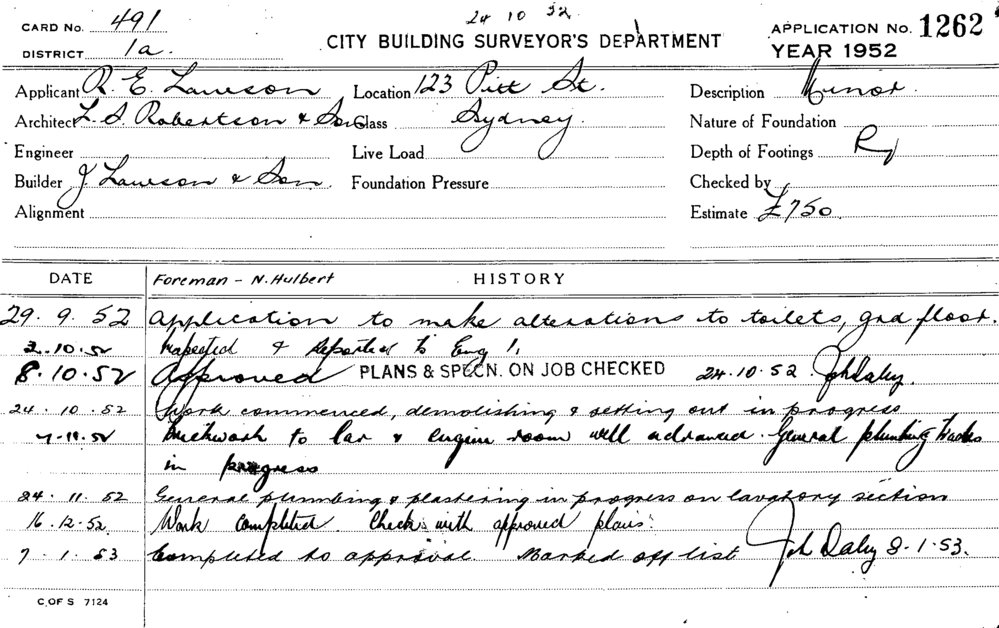 24 10 52
CARD No. 491
CITY BUILDING SURVEYOR'S DEPARTMENT
APPLICATION No. 1262
DISTRICT 1a.
YEAR 1952
Applicant R. E. Lawson Location 123 Pitt St. Description Minor.
Architect L. S. Robertson & Son Class Sydney. Nature of Foundation
Engineer Live Load Depth of Footings
Builder J. Lawson & Son. Foundation Pressure Checked by
Alignment Estimate £750.
DATE Foreman - N. Hulbert HISTORY
29. 9. 52 Application to make alterations to toilets, grd floor.
2.10.52 Inspected & Reported to Eng
8.10.52 Approved PLANS & SPECN. ON JOB CHECKED 24.10.52 Joh Daley.
24.10.52 Work commenced, demolishing & setting out in progress
7.11.52 Brickwork to lav & engine room well advanced. General plumbing
in progress
24.11.52 General plumbing & plastering in progress on lavatory section
16.12.52. Work completed. Check with approved plans.
7.1.53 Completed to approval. Marked off list Joh Daley 8.1.53.
C. OF S 7124